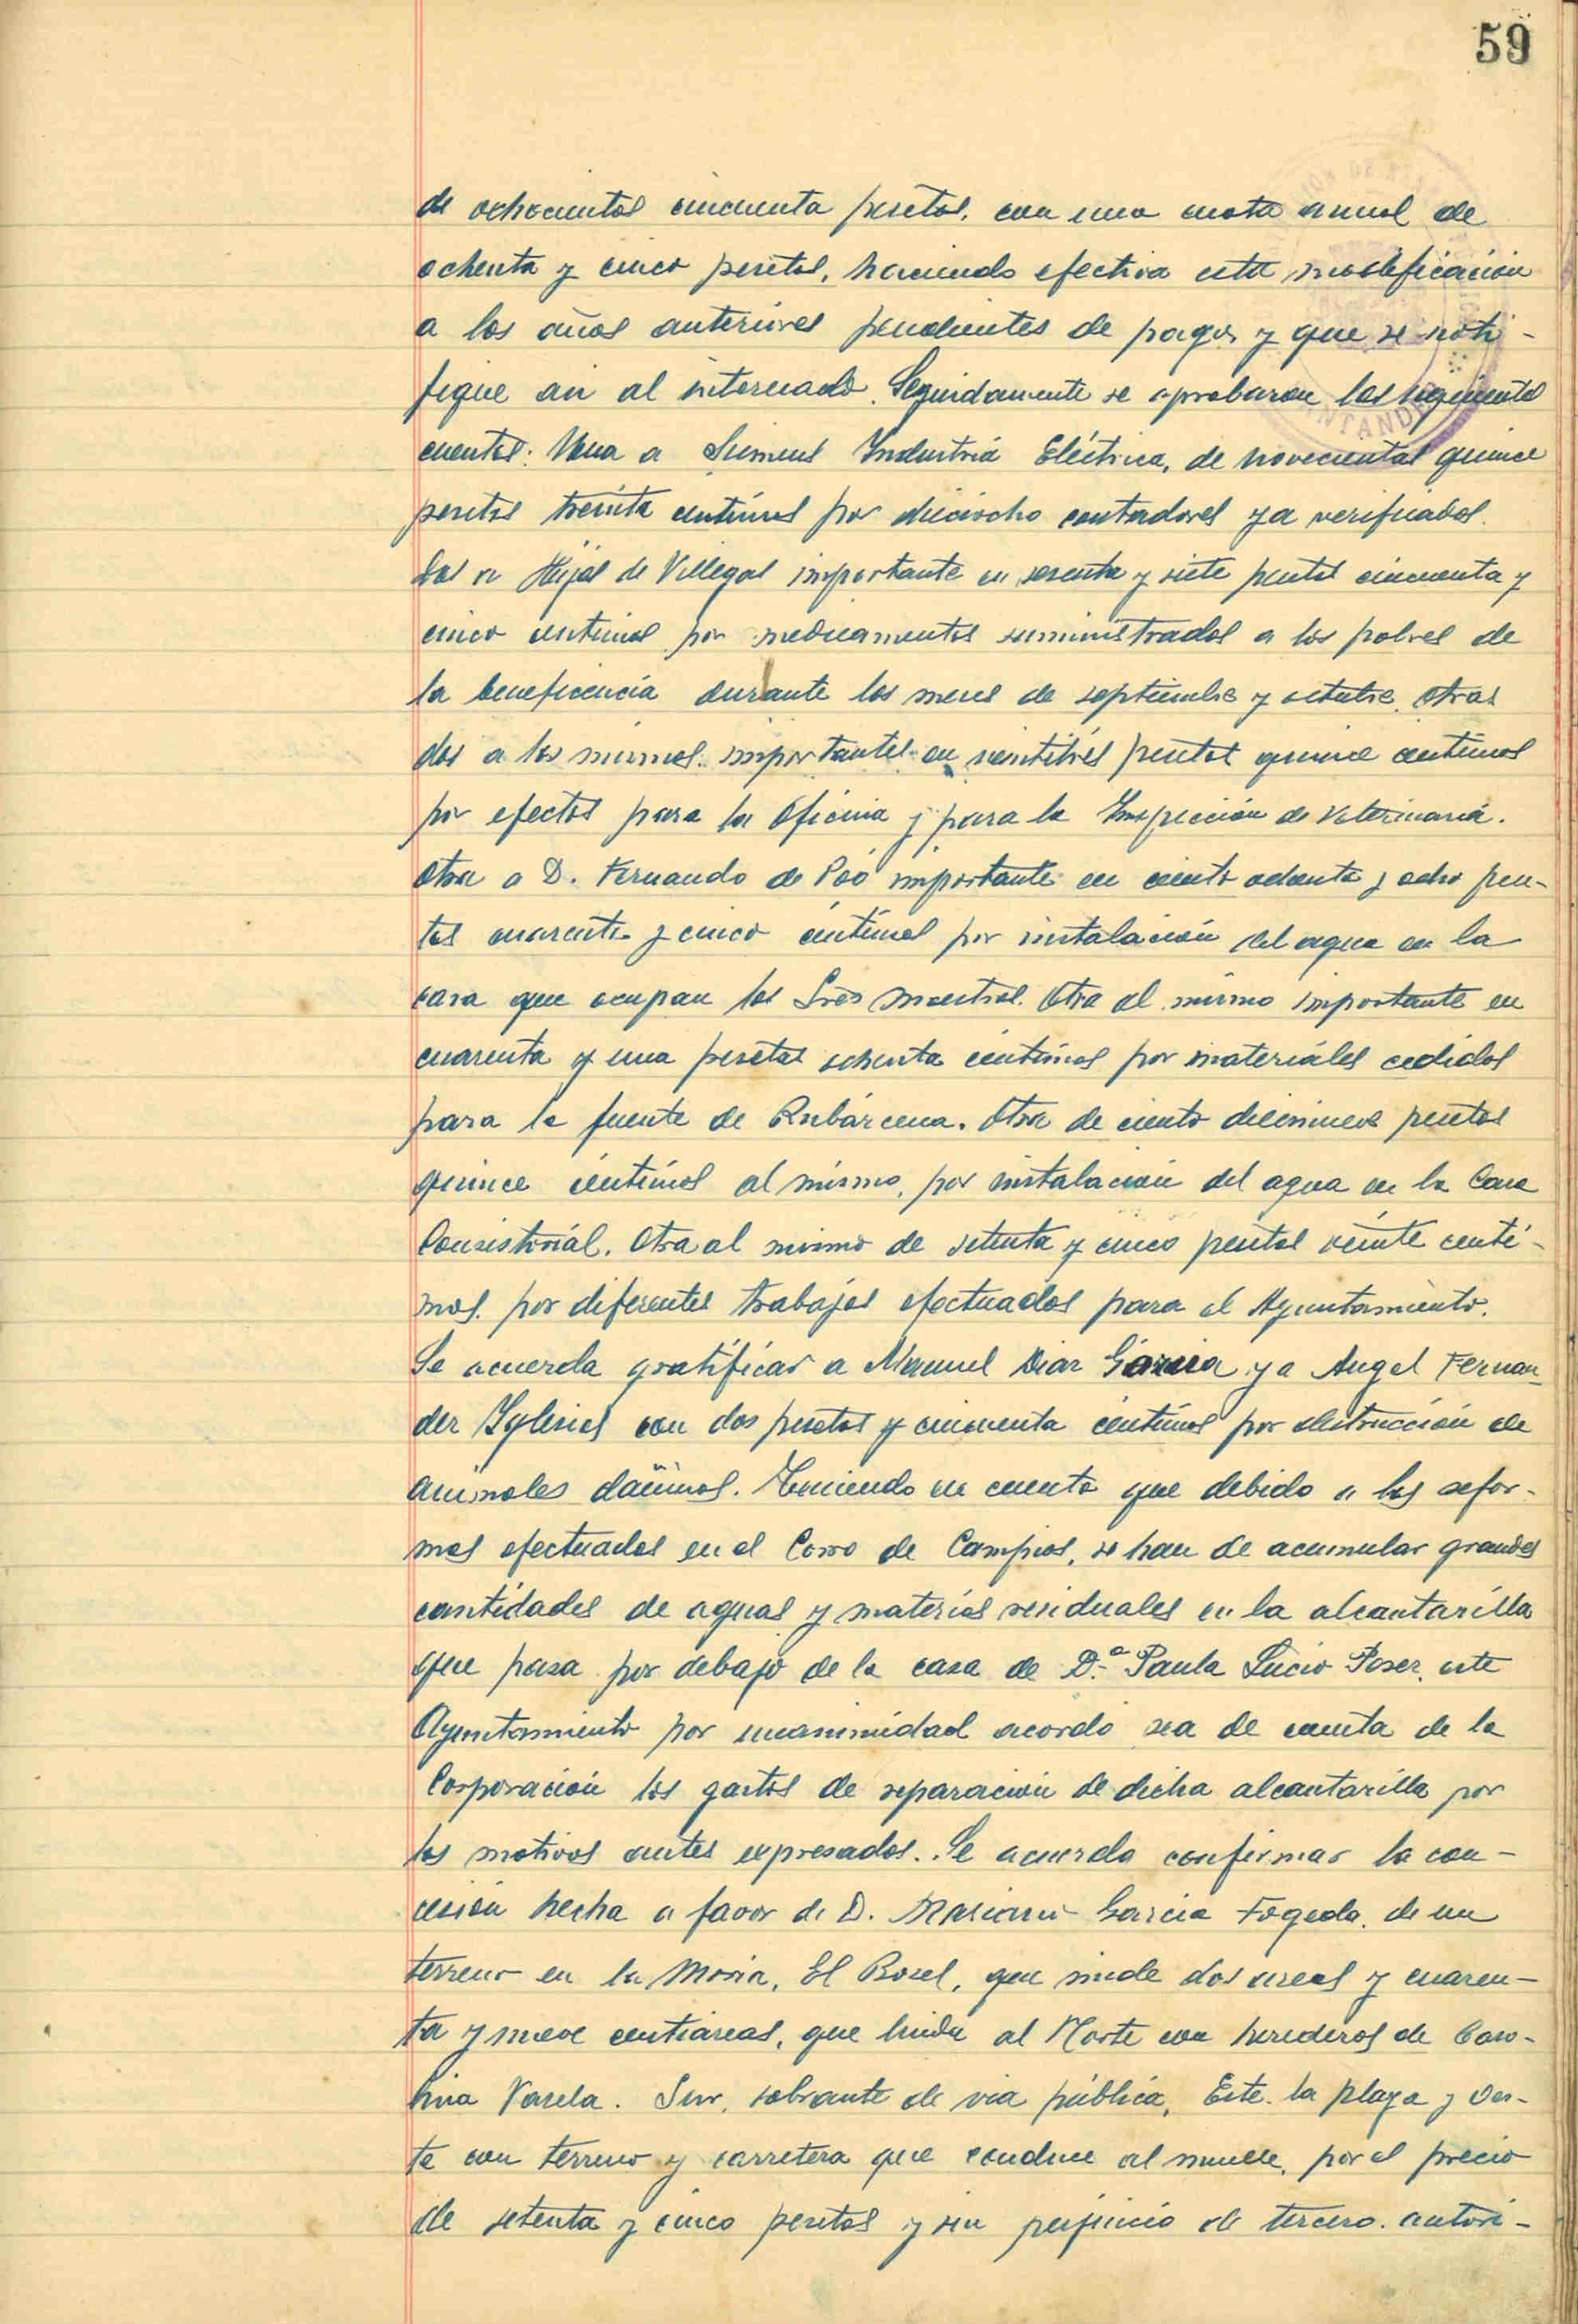 59
de ochocientas cincuenta pesetas, con una cuota anual de
ochenta y cinco pesetas, haciendo efectiva esta modificación
a los años anteriores pendientes de pago, y que se noti-
fique asi al interesado. Seguidamente se aprobaron las siguientes
cuentas: Una a Siemens Industria Eléctrica, de novecientas quince
pesetas treinta centimos por dieciocho contadores ya verificados.
Dos a Hijos de Villegas importante en sesenta y siete pesetas cincuenta y
cinco centimos por medicamentos suministrados a los pobres de
la beneficencia durante los meses de septiembre y octubre. Otras
dos a los mismos importantes en veintitrés pesetas quince centimos
por efectos para la Oficina y para la Inspección de Veterinaria.
Otra a D. Fernando de Poó importante en ciento ochenta y ocho pese-
tas cuarenta y cinco céntimos por instalación del agua en la
casa que ocupan los Sres Maestros. Otra al mismo importante en
cuarenta y una pesetas ochenta céntimos por materiales cedidos
para la fuente de Rubárcena. Otra de ciento diecinueve pesetas
quince céntimos al mismo, por instalación del agua en la Casa
Consistorial. Otra al mismo de setenta y cinco pesetas veinte centi-
mos, por diferentes trabajos efectuados para el Ayuntamiento.
Se acuerda gratificar a Manuel Diaz García y a Angel Fernan-
dez Yglesias con dos pesetas y cincuenta céntimos por destrucción de
animales dañinos. Teniendo en cuenta que debido a las refor-
mas efectuadas en el Corro de Campios, se han de acumular grandes
cantidades de aguas y materias residuales en la alcantarilla
que pasa por debajo de la casa de D.ª Paula Lucio, este
Ayuntamiento por unanimidad acordo sea de cuenta de la
Corporación los gastos de reparación de dicha alcantarilla por
los motivos antes expresados. Se acuerda confirmar la con-
cesión hecha a favor de D. Mariano Garcia Fogeda, de un
terreno en la Moria, El Rosel, que mide dos areas y cuaren-
ta y nueve centiáreas, que linda al Norte con herederos de Caro-
lina Varela. Sur, sobrante de via pública, Este la playa y Oes-
te con terreno y carretera que conduce al muelle, por el precio
de setenta y cinco pesetas y sin perjuicio de tercero. autori-